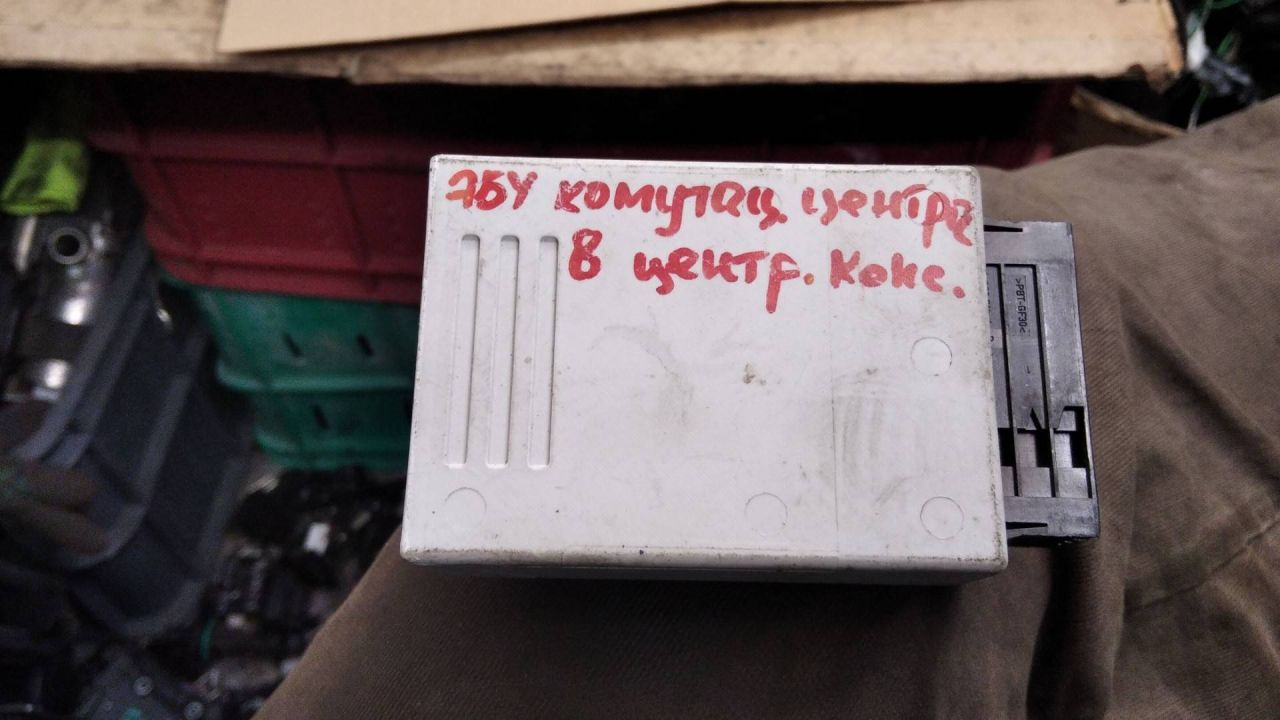 ЭБУ комутац центра
В центр. Конс.
>PBT-GF30<